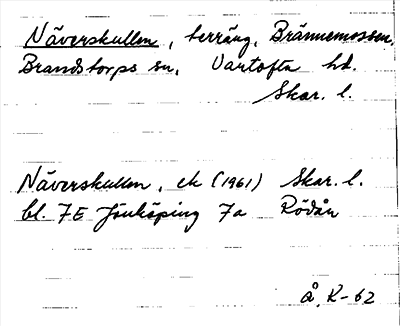 Näverskullen, terräng, Brännemossen,
Brandstorps sn, Vartofta hd.
Skar. l.
Näverskullen, ek (1961) Skar. l.
bl. 7E Jönköping 7a Rödån
Å. K-62